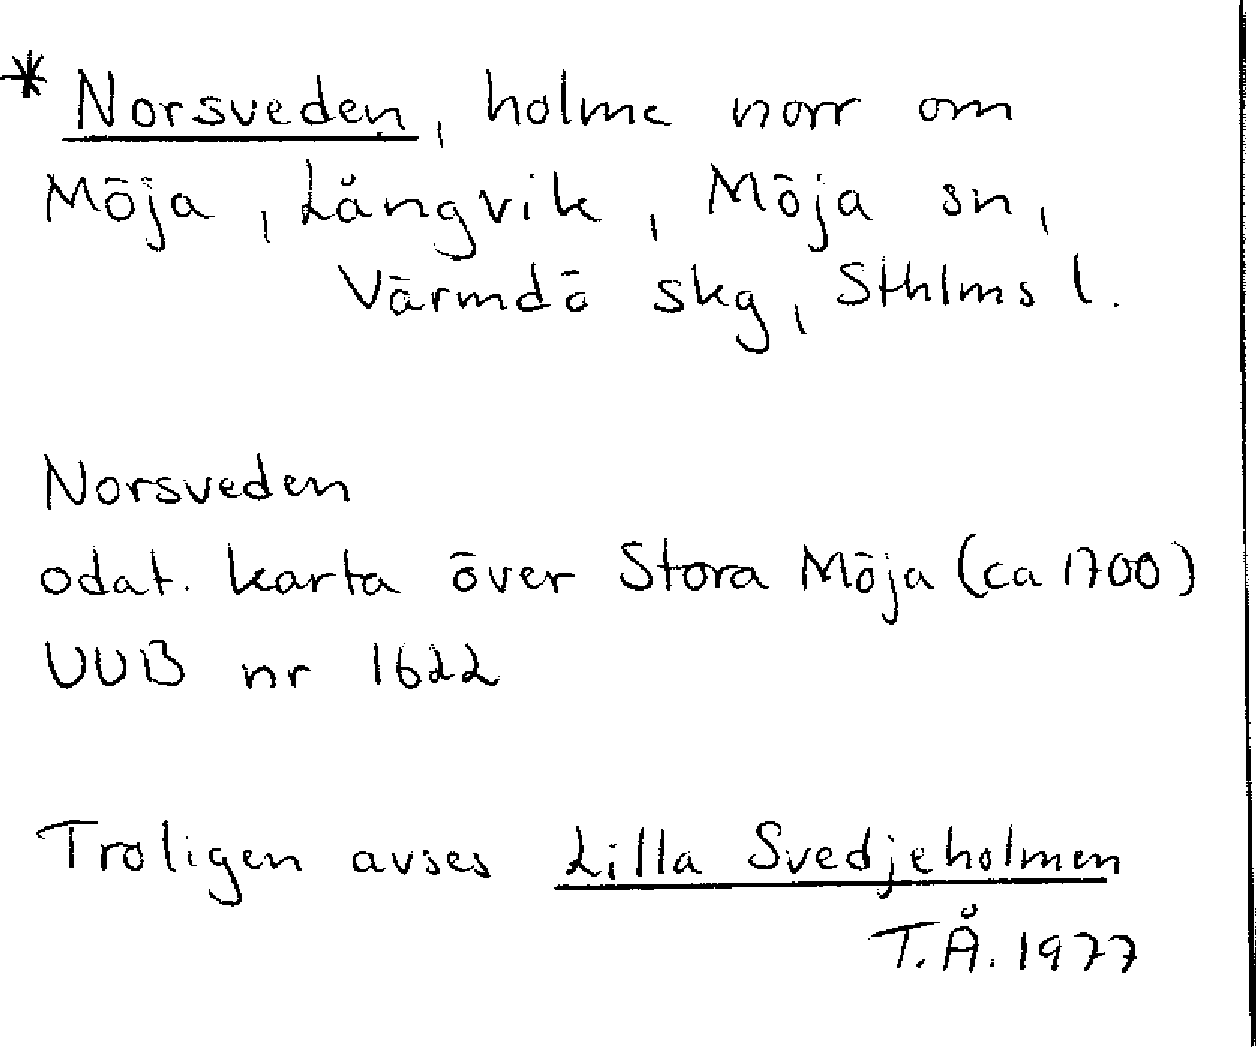 * Norsveden, holme norr om
Möja, Långvik, Möja sn,
Värmdö skg, Sthlms l.
Norsveden
odat. karta över Stora Möja (ca 1700)
UUB nr 1622
Troligen avses Lilla Svedjeholmen
T.Å. 1977